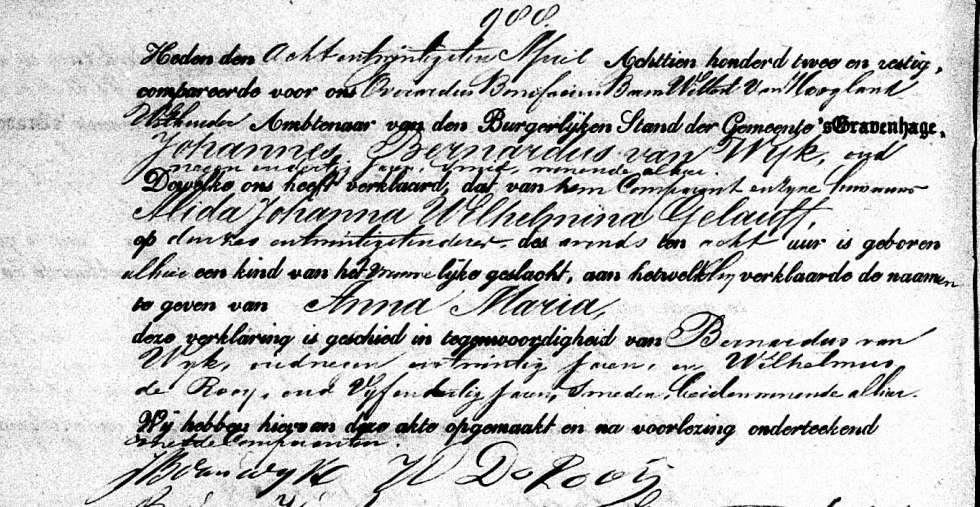 988.
Heden den Acht en twintigsten April Achttien honderd twee en zestig,
compareerde voor ons Everardus Bonifacius Baron Wittert van Hoogland
Wethouder Ambtenaar van den Burgerlijken Stand der Gemeente 's Gravenhage.
Johannes Bernardus van Wyk, oud
negen en dertig jaren, smid, wonende alhier.
Dewelke ons heeft verklaard, dat van hem Comparant en zyne huisvrouw
Alida Johanna Wilhelmina Gelauff
op den zes en twintigsten dezer des avonds ten acht uur is geboren
alhier een kind van het lijke geslacht, aan hetwelk hij verklaarde de naamen
te geven van Anna Maria,
deze verklaring is geschied in tegenwoordigheid van Bernardus van
Wyk, oud en twintig jaren, en Wilhelmus
de Rooy, oud Vyf en dertig jaren, Smeden, beiden wonende alhier.
Wij hebben hiervan deze akte opgemaakt en na voorlezing onderteekend
met de Comparanten.
JB van Wyk W De Rooij